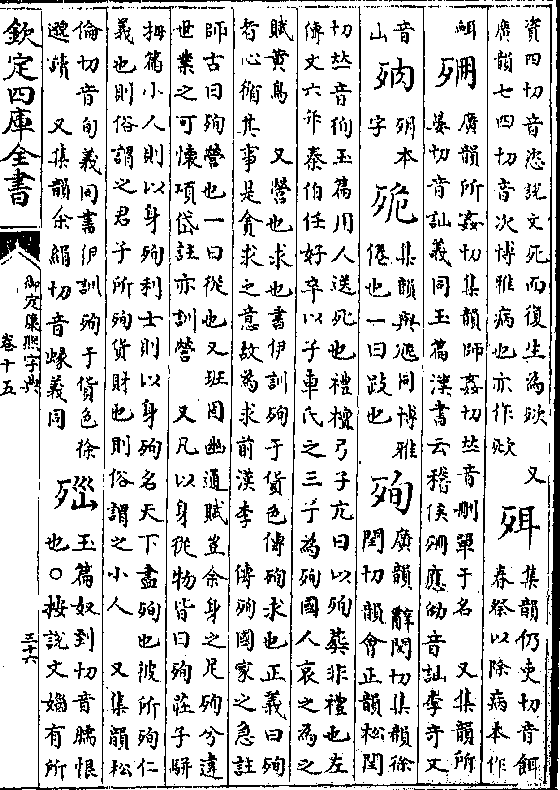 資四切音恣說文死而復生為㱞 又
廣韻七四切音次博雅病也亦作㱞
集韻仍吏切音餌
春祭以除病本作
衈
廣韻所姦切集韻師姦切𠀤音刪單于名 又集韻所
晏切音訕義同玉篇漢書云稽侯應劭音訕李奇又
音
山
本
字
集韻與同博雅
倦也一曰跂也
殉
廣韻辭閏切集韻徐
閏切韻會正韻松閏
切𠀤音徇玉篇用人送死也禮檀弓子亢曰以殉葬非禮也左
傳文六年秦伯任好卒以子車氏之三子為殉國人哀之為之
賦黃鳥 又營也求也書伊訓殉于貨色傳殉求也正義曰殉
者心循其事是貪求之意故為求前漢李 傳殉國家之急註
師古曰殉營也一曰從也又班固幽通賦豈余身之足殉兮違
世業之可懷項岱註亦訓營 又凡以身從物皆曰殉莊子駢
拇篇小人則以身殉利士則以身殉名天下盡殉也彼所殉仁
義也則俗謂之君子所殉貨財也則俗謂之小人 又集韻松
倫切音旬義同書伊訓殉于貨色徐
邈讀 又集韻余絹切音義同
玉篇奴到切音臑恨
也○按說文㛴有所
欽定四庫全書
御定康熙字典
卷十五
三十六